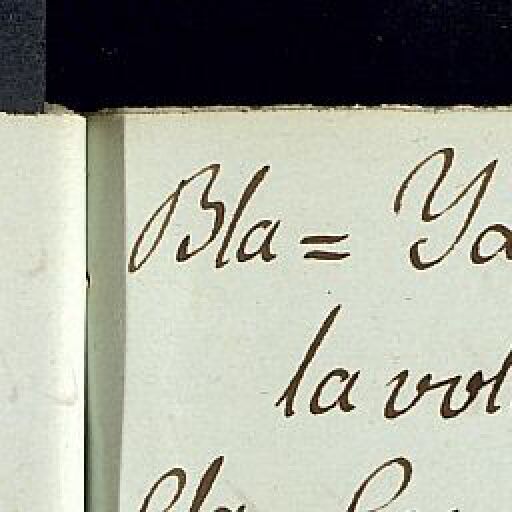 Bla = Ya
la vol